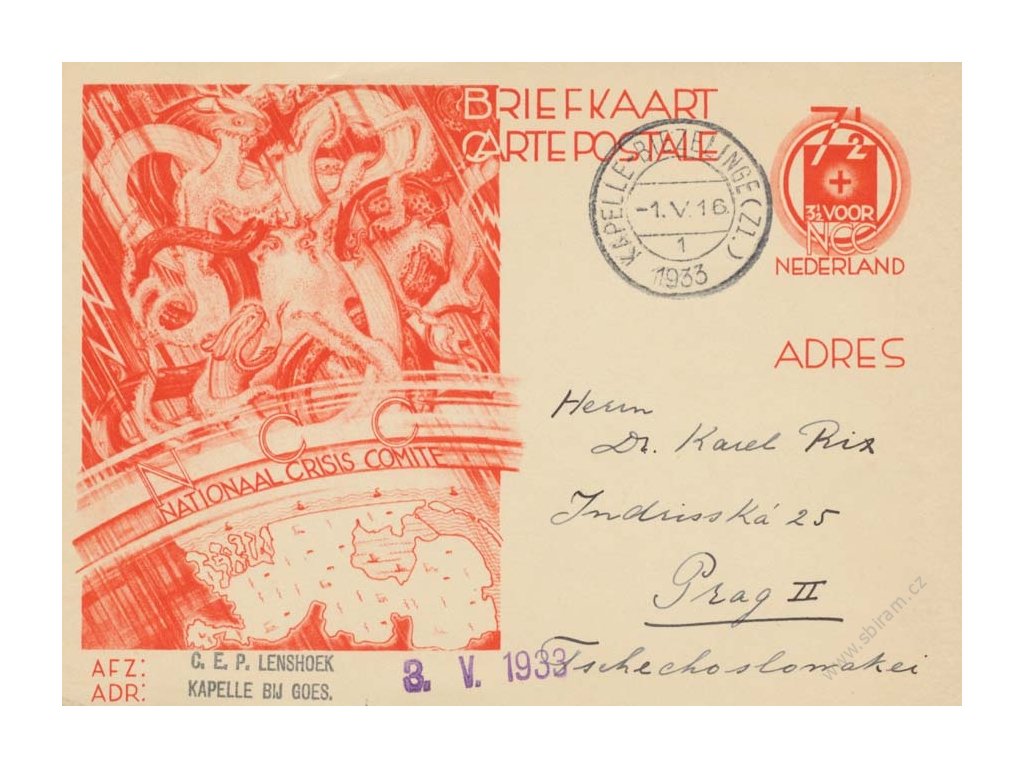 BRIEFKAART
CARTE POSTALE
7½
3½ VOOR
NCC
NEDERLAND
KAPELLE-BIEZELINGE (ZL.)
-1.V.16.
1
1933
ADRES
Herrn
Dr. Karel Rix
Indrisská 25
Prag II
Tschechoslowakei
N C C
NATIONAAL CRISIS COMITE
AFZ:
ADR:
C. E. P. LENSHOEK
KAPELLE BIJ GOES.
3. V. 1933
www.sbiram.cz